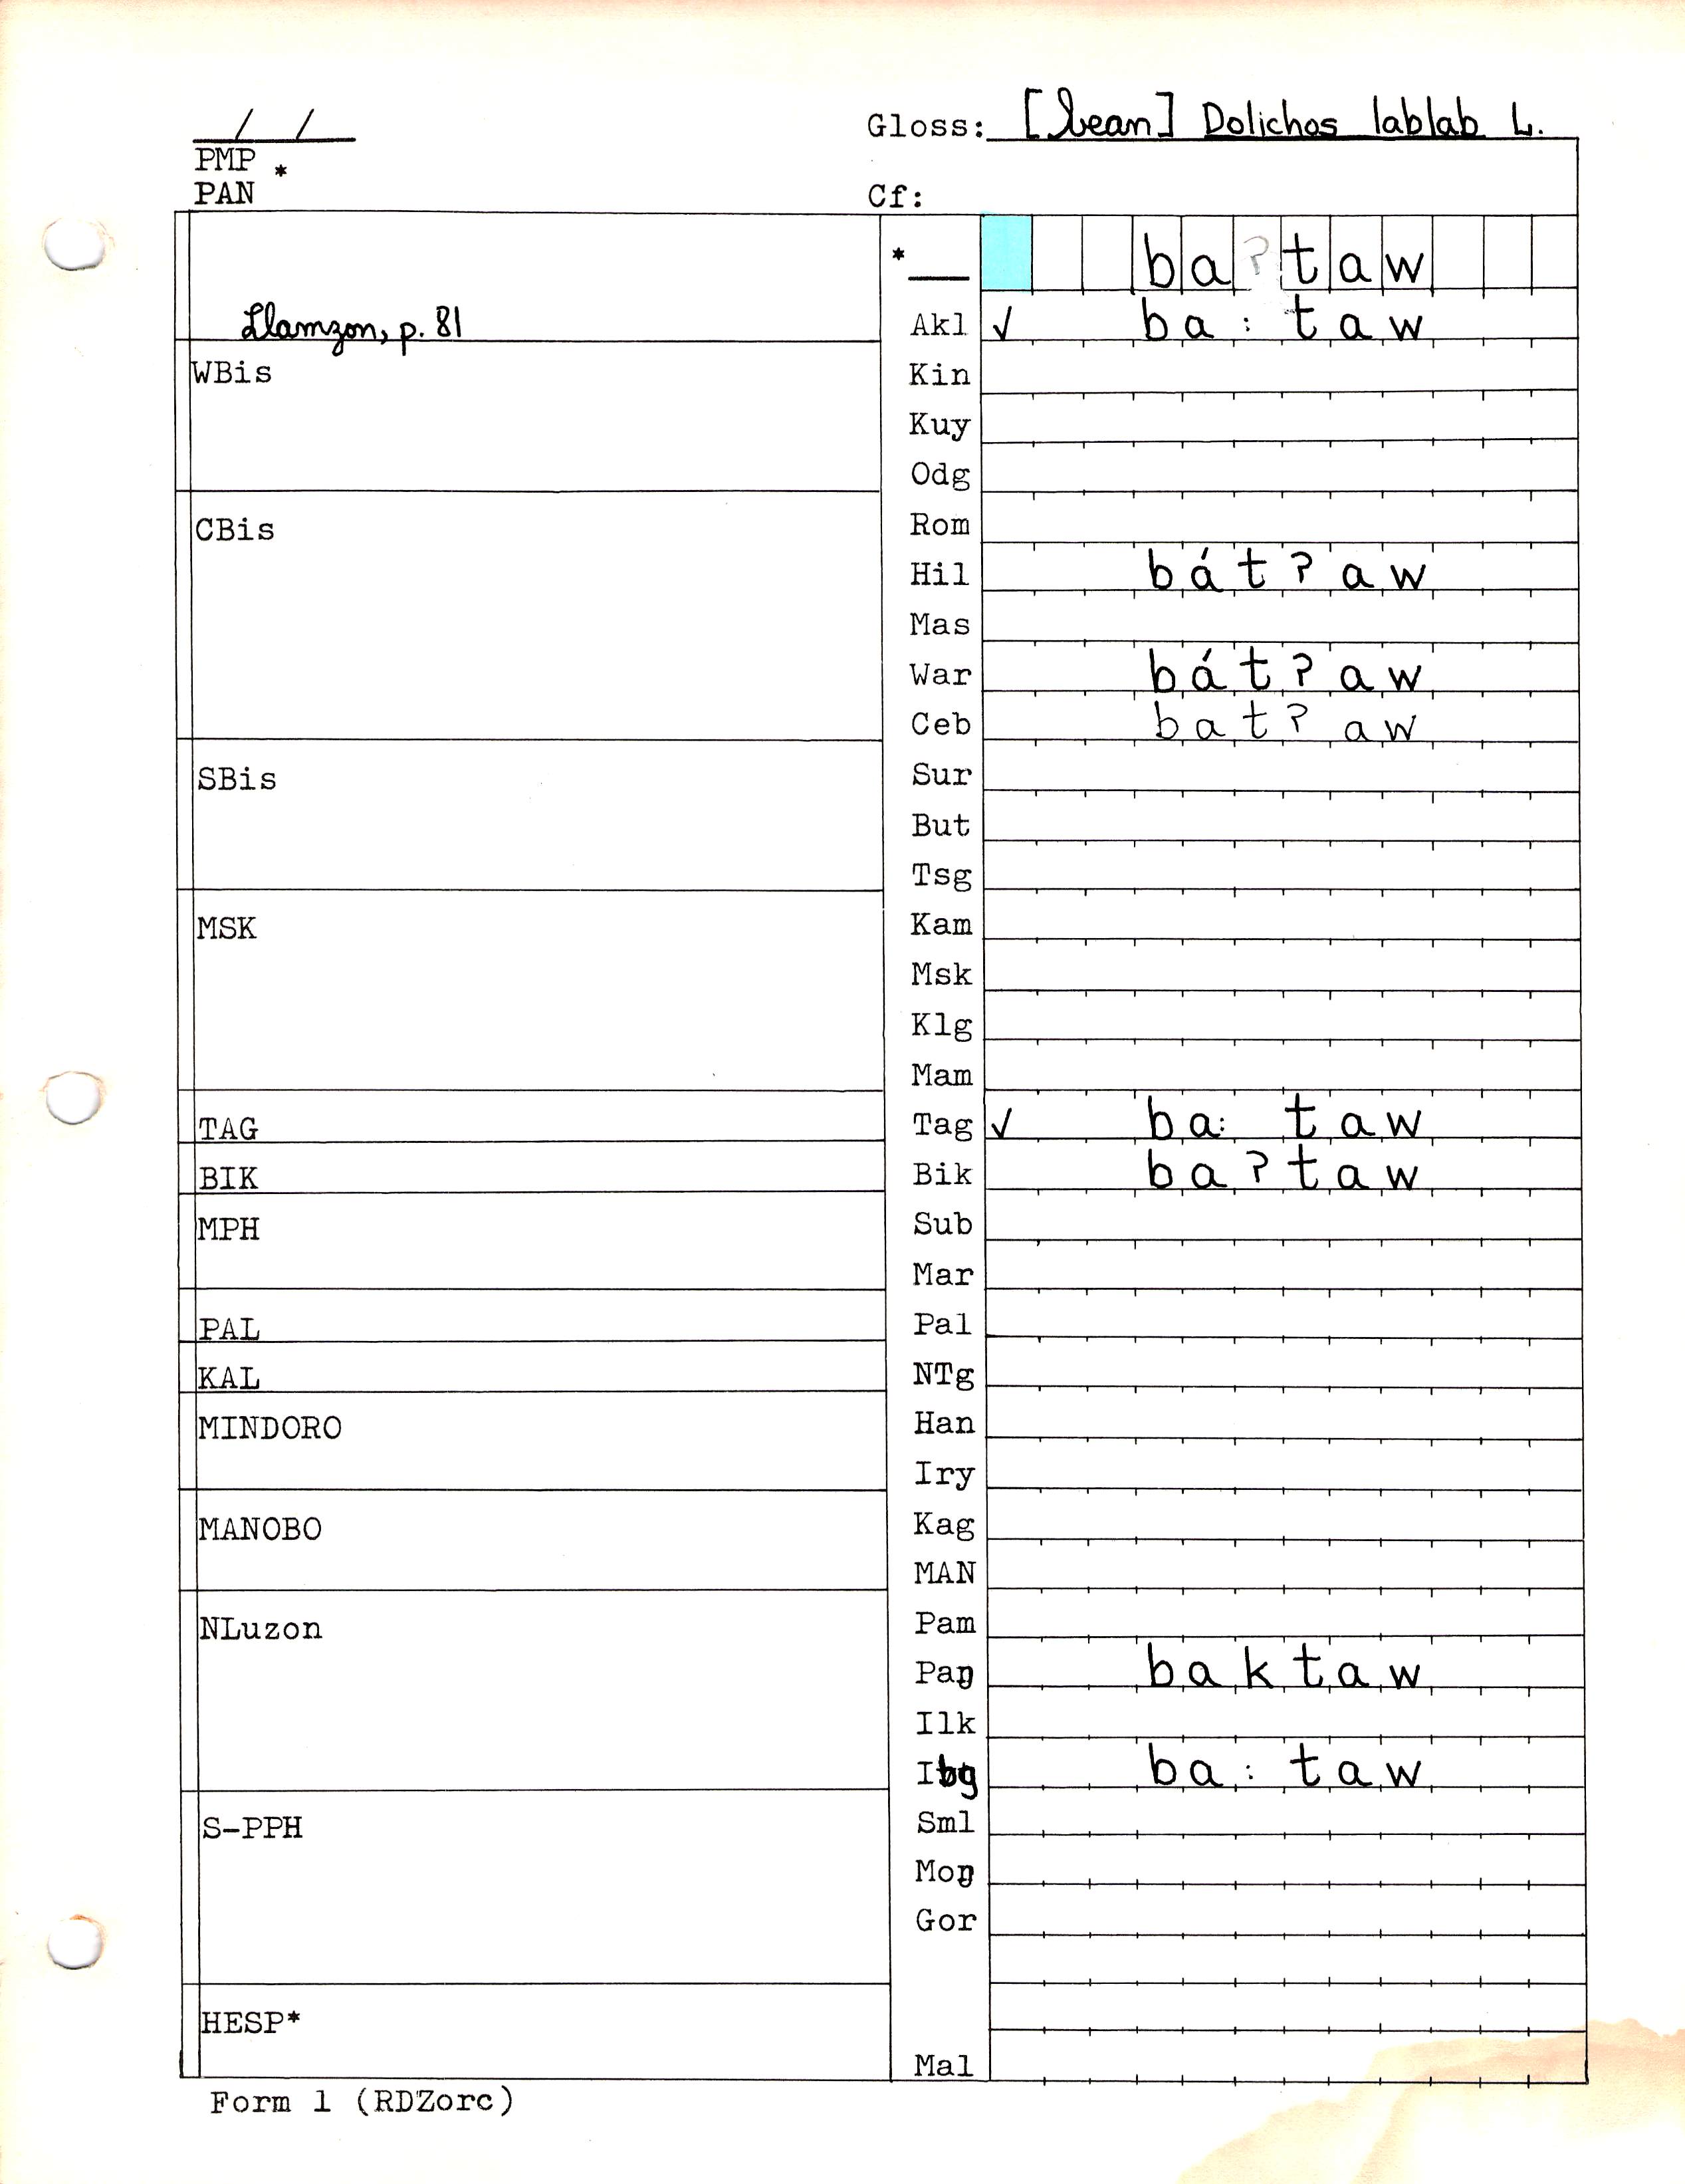 / /
Gloss: [bean] Dolichos lablab L.
PMP *
PAN
Cf:
* ba?taw
Llamzon, p. 81
Akl ✓ ba:taw
WBis
Kin
Kuy
Odg
CBis
Rom
Hil bátʔaw
Mas
War bátʔaw
Ceb batʔaw
SBis
Sur
But
Tsg
MSK
Kam
Msk
Klg
Mam
TAG
Tag ✓ ba:taw
BIK
Bik baʔtaw
MPH
Sub
Mar
PAL
Pal
KAL
NTg
MINDORO
Han
Iry
MANOBO
Kag
MAN
NLuzon
Pam
Paŋ baktaw
Ilk
Ibg ba:taw
S-PPH
Sml
Moŋ
Gor
HESP*
Mal
Form 1 (RDZorc)